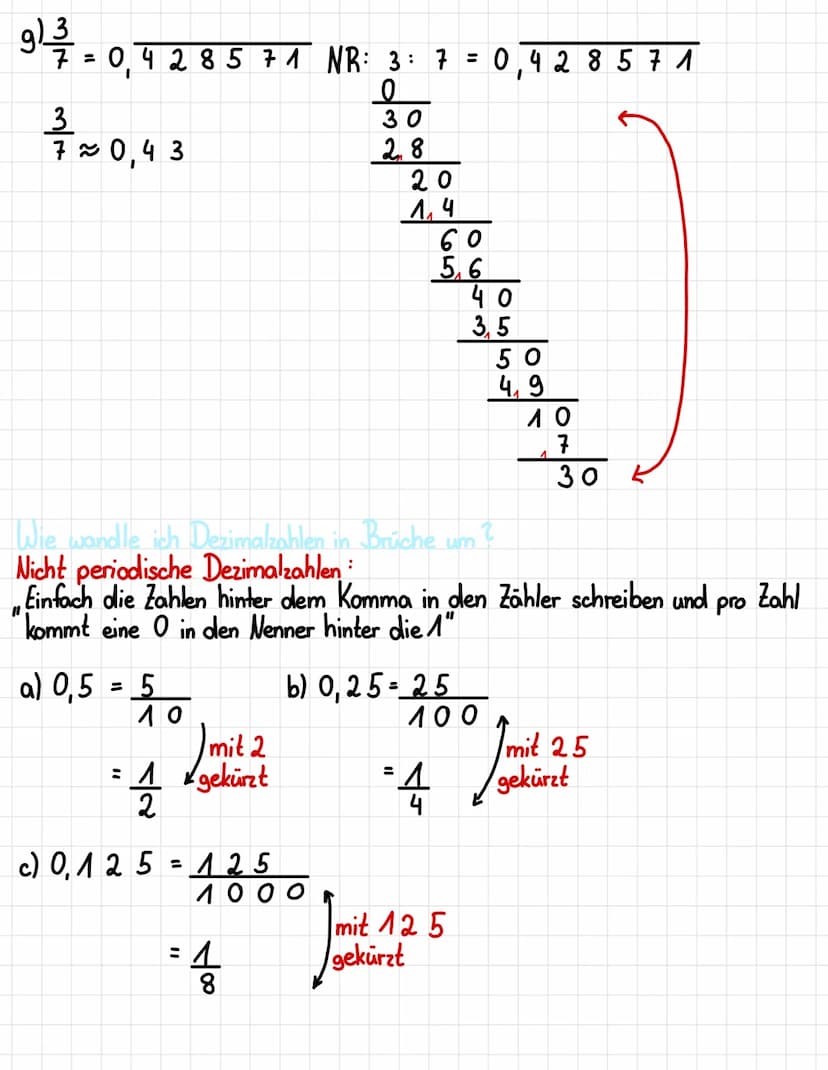 g) 3/7 = 0,428571 NR: 3 : 7 = 0,428571
0
3/7 ≈ 0,43
30
28
20
14
60
56
40
35
50
49
10
7
30
Wie wandle ich Dezimalzahlen in Brüche um?
Nicht periodische Dezimalzahlen:
„Einfach die Zahlen hinter dem Komma in den Zähler schreiben und pro Zahl
kommt eine 0 in den Nenner hinter die 1"
a) 0,5 = 5/10 b) 0,25 = 25/100
mit 2 mit 25
= 1/2 gekürzt = 1/4 gekürzt
c) 0,125 = 125/1000
mit 125
= 1/8 gekürzt